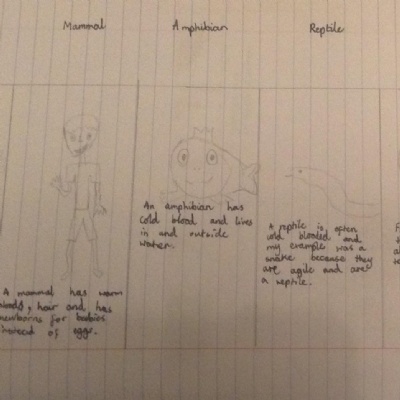 Mammal
Amphibian
Reptile
A mammal has warm
blood, hair and has
newborns for babies
instead of eggs.
An amphibian has
cold blood and lives
in and outside
water.
A reptile is often
cold blooded and
my example was a
snake because they
are agile and are
a reptile.